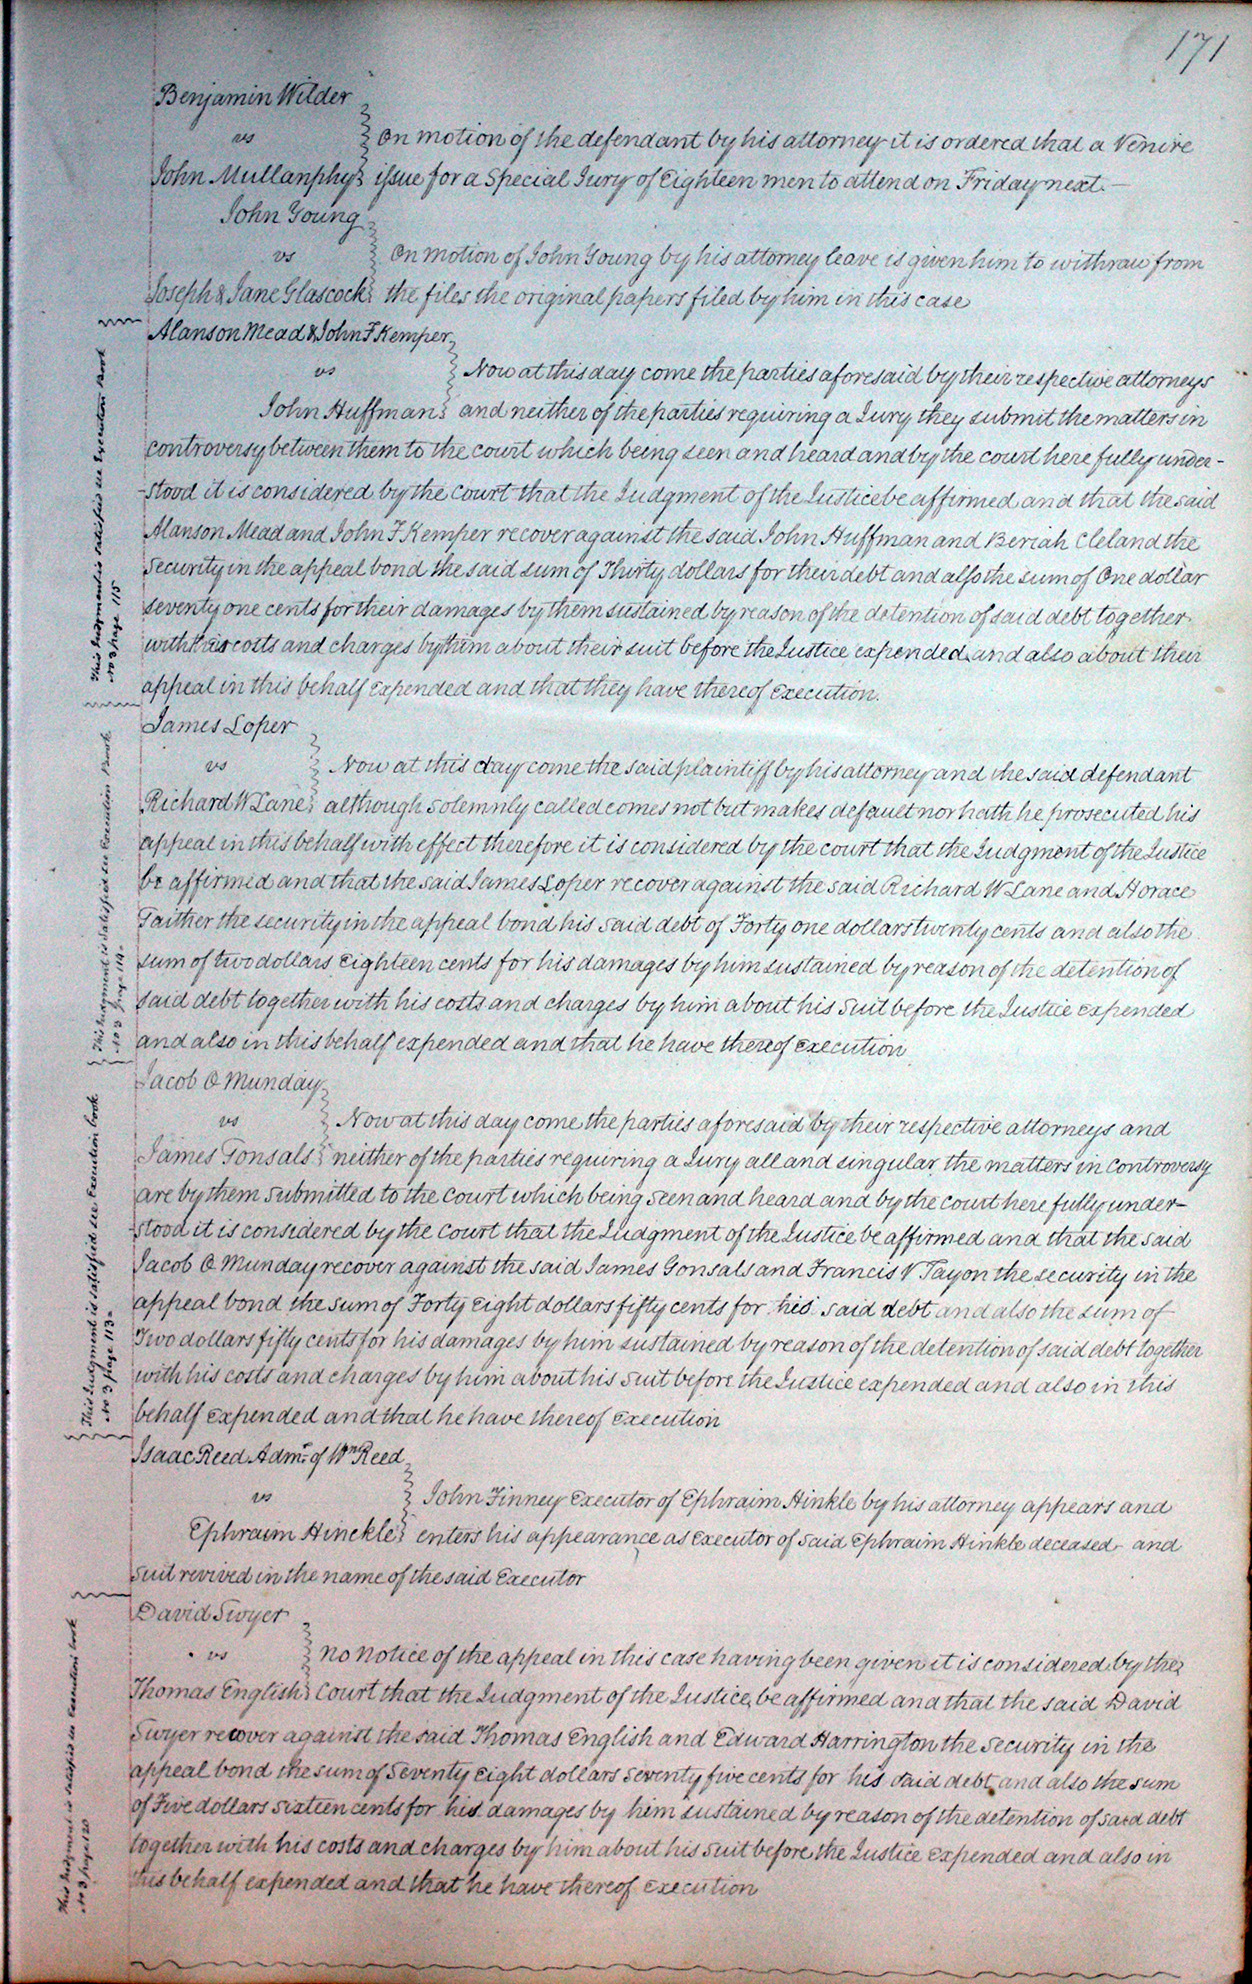 171
Benjamin Wilder
vs
On motion of the defendant by his attorney it is ordered that a Venire
John Mullanphy issue for a Special Jury of Eighteen men to attend on Friday next. —
John Young
vs
On motion of John Young by his attorney leave is given him to withraw from
Joseph & Jane Glascock the files the original papers filed by him in this case
Alanson Mead & John F Kemper
vs
Now at this day come the parties aforesaid by their respective attorneys
John Huffman and neither of the parties requiring a Jury they submit the matters in
controversy between them to the court which being seen and heard and by the court here fully under-
-stood it is considered by the Court that the Judgment of the Justice be affirmed and that the said
Alanson Mead and John F Kemper recover against the said John Huffman and Beriah Cleland the
Security in the appeal bond the said sum of Thirty dollars for their debt and also the sum of One dollar
seventy one cents for their damages by them sustained by reason of the detention of said debt together
with their costs and charges by them about their suit before the Justice expended and also about their
appeal in this behalf expended and that they have thereof Execution.
This Judgment is satisfied see Execution Book
No 3 page 115
James Loper
vs
Now at this day come the said plaintiff by his attorney and the said defendant
Richard W Lane although Solemnly called comes not but makes default nor hath he prosecuted his
appeal in this behalf with effect therefore it is considered by the court that the Judgment of the Justice
be affirmed and that the said James Loper recover against the said Richard W Lane and Horace
Gaither the security in the appeal bond his said debt of Forty one dollars twenty cents and also the
sum of two dollars Eighteen cents for his damages by him sustained by reason of the detention of
said debt together with his costs and charges by him about his Suit before the Justice expended
and also in this behalf expended and that he have thereof Execution
This Judgment is satisfied see Execution Book
No 3 page 114
Jacob O Munday
vs
Now at this day come the parties aforesaid by their respective attorneys and
James Gonsals neither of the parties requiring a Jury all and singular the matters in controversy
are by them submitted to the Court which being seen and heard and by the court here fully under-
-stood it is considered by the Court that the Judgment of the Justice be affirmed and that the said
Jacob O Munday recover against the said James Gonsals and Francis V Tayon the security in the
appeal bond the sum of Forty Eight dollars fifty cents for his said debt and also the sum of
Two dollars fifty cents for his damages by him sustained by reason of the detention of said debt together
with his costs and charges by him about his Suit before the Justice expended and also in this
behalf expended and that he have thereof Execution
This Judgment is satisfied see Execution book
No 3 page 113
Isaac Reed Admr. of Wm Reed
vs
John Finney Executor of Ephraim Hinkle by his attorney appears and
Ephraim Hinckle enters his appearance as Executor of said Ephraim Hinkle deceased and
suit revived in the name of the said Executor
David Swyer
vs
No notice of the appeal in this case having been given it is considered by the
Thomas English Court that the Judgment of the Justice be affirmed and that the said David
Swyer recover against the said Thomas English and Edward Harrington the security in the
appeal bond the sum of Seventy Eight dollars seventy five cents for his said debt and also the sum
of Five dollars sixteen cents for his damages by him sustained by reason of the detention of said debt
together with his costs and charges by him about his suit before the Justice expended and also in
this behalf expended and that he have thereof Execution
This Judgment is satisfied see Execution book
No 3 page 120